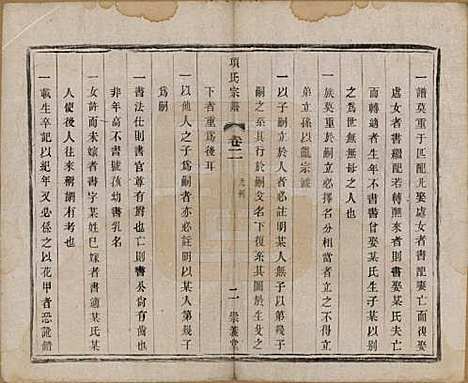 一譜莫重于匹配凡娶處女者書配娶亡而後娶
處女者書繼配若轉醮來者書娶某氏夫亡
而轉適者生年不書曾娶某氏生子某以別
之爲世無無母之人也
一族莫重于立嗣必擇名分相當者立之不得立
弟立孫以亂宗誠
一以子嗣立於人者必註明某人無子以某幾子
嗣之至其行於嗣父名下復系其圖於生父之
下者重爲後耳
項氏宗譜
卷二
凡例
二
崇義堂
一以他人之子爲嗣者亦必註明以某人第幾子
爲嗣
一書法仕則書官尊有爵也亡則書公尚有齒也
非年高不書號孩幼書乳名
一女許而未嫁者書字某姓已嫁者書適某氏某
人使後人往來稱謂有考也
一載生卒記以紀年又必係之以花甲者恐訛錯